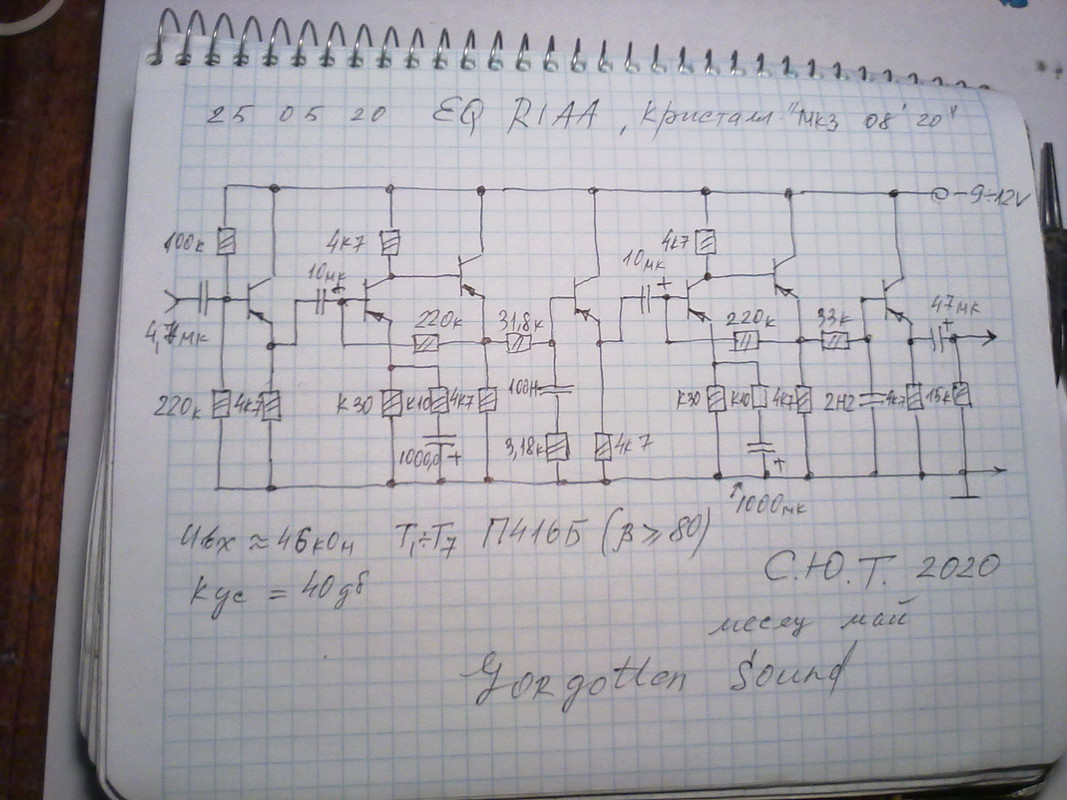 25 05 20 EQ RIAA, кристалл "мкз 08' 20"
-9÷12V
100к 4к7 10мк + 4к7 10мк +
4,7мк 220к 31,8к 220к 33к 47мк +
220к 4к7 К30 К10 4к7 100Н К30 К10 4к7 2Н2 4к7 15к
1000,0 + 3,18к 4к7 +
1000мк
Ивх ≈ 46кОм T1÷T7 П416Б (β ≥ 80)
Кус = 40дб
С.Ю.Т. 2020
месяц май
Forgotten Sound